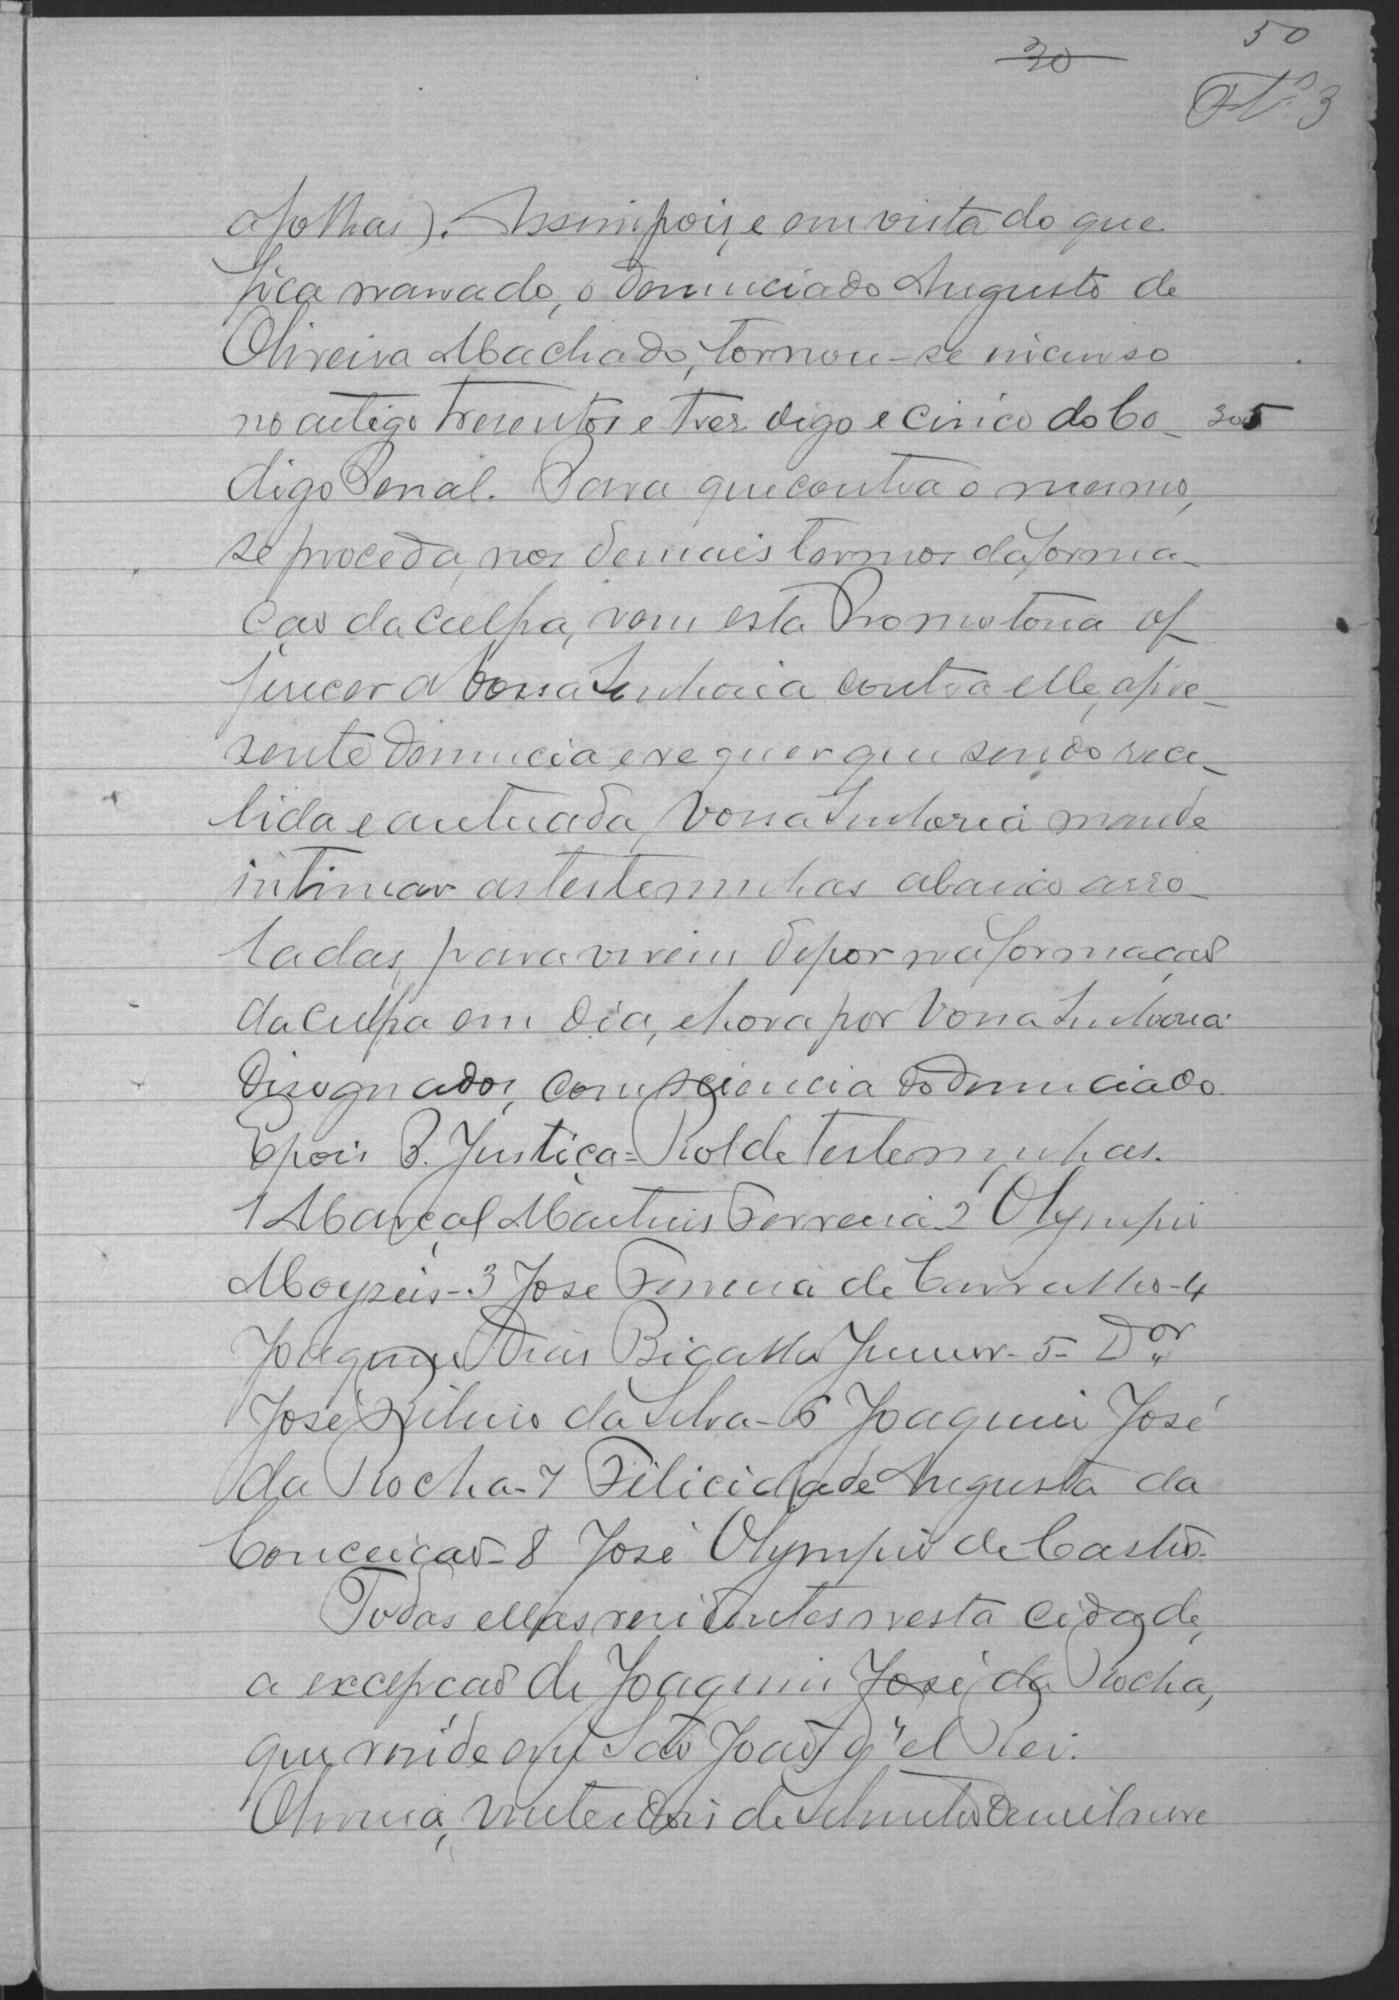 50
30
Fls 3
a folhas). Assim pois, e em vista do que
fica narrado, o denunciado Augusto de
Oliveira Machado, tornou-se incurso
no artigo tresentos e tres digo e cinco do Co- 305
digo Penal. Para que contra o mesmo,
se proceda, nos demais termos da forma-
cão da culpa, vem esta Promotoria of
ferecer a Vossa Senhoria contra elle, apre-
sente denuncia e requer que sendo rece-
bida e autuada, Vossa Senhoria mande
intimar as testemunhas abaixo arro-
ladas, para virem depor na formação
da culpa em dia, e hora por Vossa Senhoria
designados, com sciencia do denunciado.
E pois P. Justiça = Rol de testemunhas.
1 Marçal Martins Ferreira 2 Olympio
Moyseis - 3 José Ferreira de Carvalho - 4
Joaquim Dias Bicalho Junior - 5 - Dor
José da Silva - 6 Joaquim José
da Rocha - 7 Felicidade Augusta da
Conceição - 8 José Olympio de Castro.
Todas ellas residentes nesta cidade,
a excepção de Joaquim José da Rocha,
que reside em São João d'el Rei.
Oliveira, vinte e dois de Setembro de mil nove